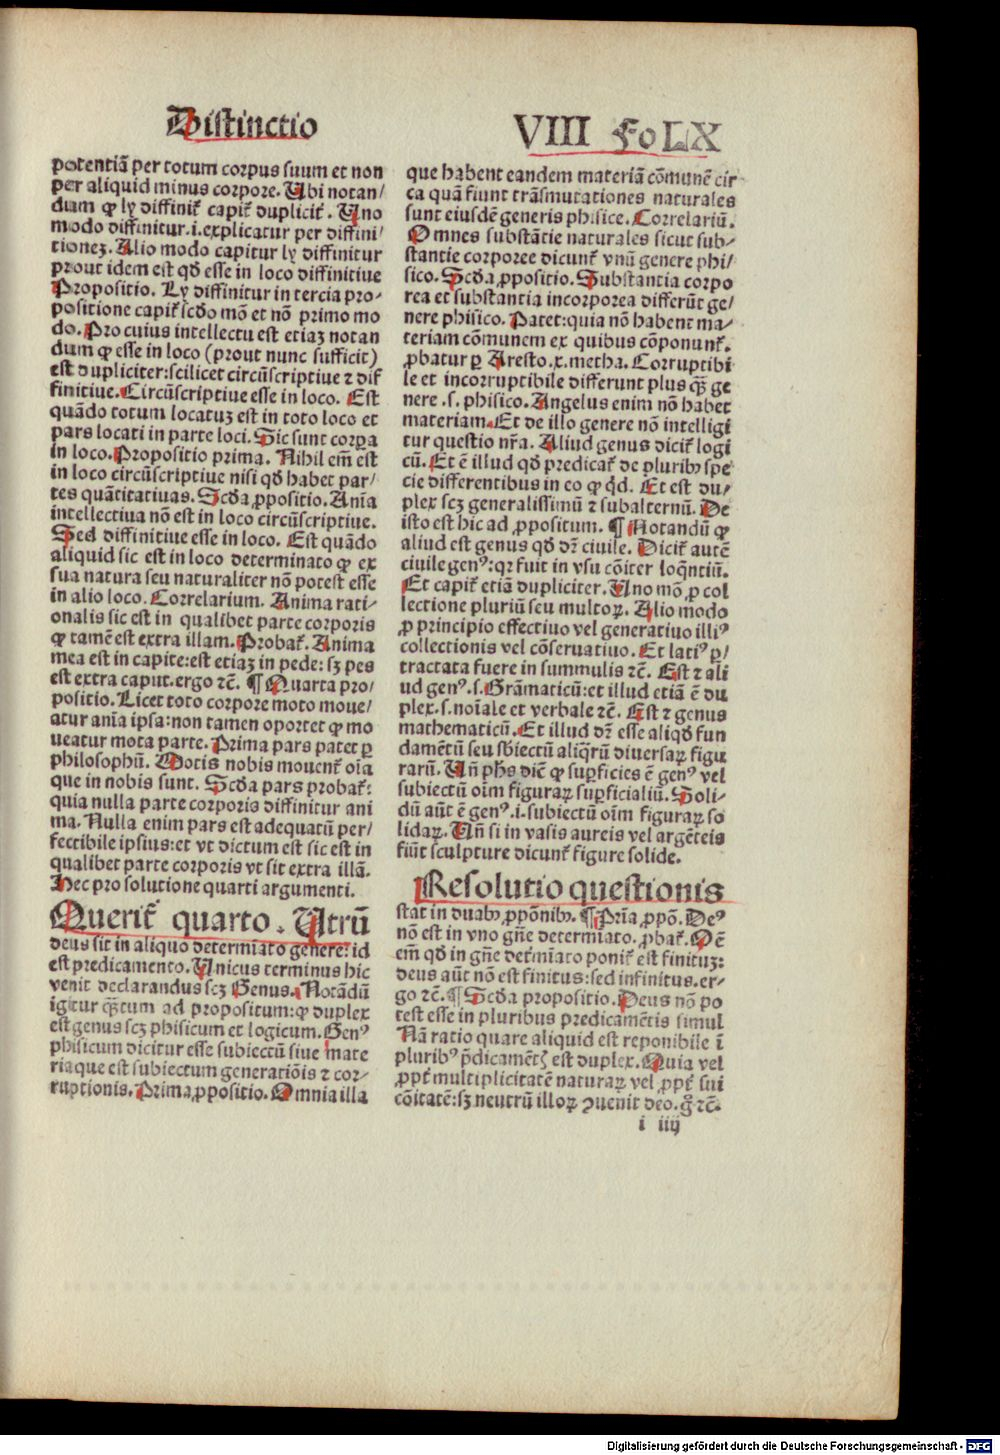 Distinctio
VIII Fo LX
potentiā per totum corpus suum et non
per aliquid minus corpore. Ubi notan/
dum ꝙ ly diffiniť capiť dupliciť. Uno
modo diffinitur .i. explicatur per diffini/
tionez. Alio modo capitur ly diffinitur
prout idem est qď esse in loco diffinitiue
Propositio. Ly diffinitur in tercia pro-
positione capiť scďo mō et nō primo mo
do. Pro cuius intellectu est etiaʒ notan
dum ꝙ esse in loco (prout nunc sufficit)
est dupliciter: scilicet circūscriptiue ⁊ dif
finitiue. Circūscriptiue esse in loco. Est
quādo totum locatuʒ est in toto loco et
pars locati in parte loci. Sic sunt corpa
in loco. Propositio prima. Nihil em̄ est
in loco circūscriptiue nisi qď habet par/
tes quātitatiuas. Scďa ꝓpositio. Anīa
intellectiua nō est in loco circūscriptiue.
Sed diffinitiue esse in loco. Est quādo
aliquid sic est in loco determinato ꝙ ex
sua natura seu naturaliter nō potest esse
in alio loco. Correlarium. Anima rati/
onalis sic est in qualibet parte corporis
ꝙ tamē est extra illam. Probať. Anima
mea est in capite: est etiaʒ in pede: sʒ pes
est extra caput. ergo ⁊č. ¶ Quarta pro/
positio. Licet toto corpore moto moue/
atur anīa ipsa: non tamen oportet ꝙ mo
ueatur mota parte. Prima pars patet ꝑ
philosophū. Motis nobis mouenť oīa
que in nobis sunt. Scďa pars probať:
quia nulla parte corporis diffinitur ani
ma. Nulla enim pars est adequatū per/
fectibile ipsius: et vt dictum est sic est in
qualibet parte corporis vt sit extra illā.
Hec pro solutione quarti argumenti.
Queriť quarto. Utrū
deus sit in aliquo determīato genere: id
est predicamento. Unicus terminus hic
venit declarandus scʒ Genus. Notādū
igitur qꝫtum ad propositum: ꝙ duplex
est genus scʒ phisicum et logicum. Genꝰ
phisicum dicitur esse subiectū siue mate
ria que est subiectum generatiōis ⁊ cor-
ruptionis. Prima ꝓpositio. Omnia illa
que habent eandem materiā cōmunē cir
ca quā fiunt trāsmutationes naturales
sunt eiusdē generis phisice. Correlariū.
Omnes substātie naturales sicut sub-
stantie corporee dicunť vnū genere phi/
sico. Scďa ꝓpositio. Substantia corpo
rea et substantia incorporea differūt ge/
nere phisico. Patet: quia nō habent ma-
teriam cōmunem ex quibus cōponunť.
ꝓbatur ꝑ Aresto. x. metha. Corruptibi
le et incorruptibile differunt plus qꝫ ge
nere .s. phisico. Angelus enim nō habet
materiam. Et de illo genere nō intelligi
tur questio nr̄a. Aliud genus diciť logi
cū. Et ē illud qď predicať de pluribꝰ spe
cie differentibus in eo ꝙ qͥd. Et est du/
plex scʒ generalissimū ⁊ subalternū. De
isto est hic ad ꝓpositum. ¶ Notandū ꝙ
aliud est genus qď dr̄ ciuile. Diciť autē
ciuile genꝰ: qꝛ fuit in vsu cōiter loqntiū.
Et capiť etiā dupliciter. Uno mō ꝓ col
lectione pluriū seu multoꝝ. Alio modo
ꝓ principio effectiuo vel generatiuo illiꝰ
collectionis vel cōseruatiuo. Et latiꝰ ꝑ/
tractata fuere in summulis ⁊č. Est ⁊ ali
ud genꝰ .s. Grāmaticū: et illud etiā ē du
plex .s. noīale et verbale ⁊č. Est ⁊ genus
mathematicū. Et illud dr̄ esse aliqď fun
damētū seu sbiectū aliqͦrū diuersaꝝ figu
rarū. Uñ phs dic̄ ꝙ suꝑficies ē genꝰ vel
subiectū oīm figuraꝝ suꝑficialiū. Soli-
dū aūt ē genꝰ .i. subiectū oīm figuraꝝ so
lidaꝝ. Uñ si in vasis aureis vel argēteis
fiūt sculpture dicunť figure solide.
Resolutio questionis
stat in duabꝰ ꝓpōnibꝰ. ¶ Pr̄ia ꝓpō. Deꝰ
nō est in vno gn̄e determīato. ꝓbať. Oē
em̄ qď in gn̄e det̄mīato poniť est finituʒ:
deus aūt nō est finitus: sed infinitus. er-
go ⁊č. ¶ Scďa propositio. Deus nō po
test esse in pluribus predicamētis simul
Nā ratio quare aliquid est reponibile ī
pluribꝰ p̄dicamētꝭ est duplex. Quia vel
ꝓpť multiplicitatē naturaꝝ vel ꝓpť sui
cōitatē: sʒ neutrū illoꝝ ꝯuenit deo. g̊ ⁊č.
i iiij
Digitalisierung gefördert durch die Deutsche Forschungsgemeinschaft - DFG